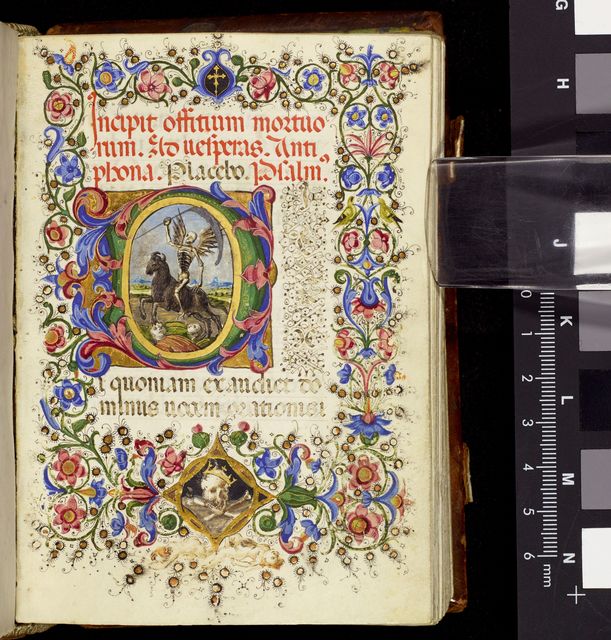 Incipit offitium mortuo
rum. Ad uesperas. Anti
phona. Placebo. Psalm9
Di
quoniam exaudiet do
minus uocem orationis
G
H
J
K
L
M
N
0
1
2
3
4
5
6
mm